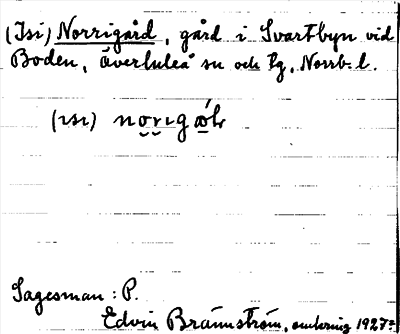 (Isi) Norrigård, gård i Svartbyn vid
Boden, Överluleå sn och tg, Norrb. l.
(ɪsɪ) norɪgaɷ́ɽ
Sagesman: P.
Edvin Brännström, omkring 1927